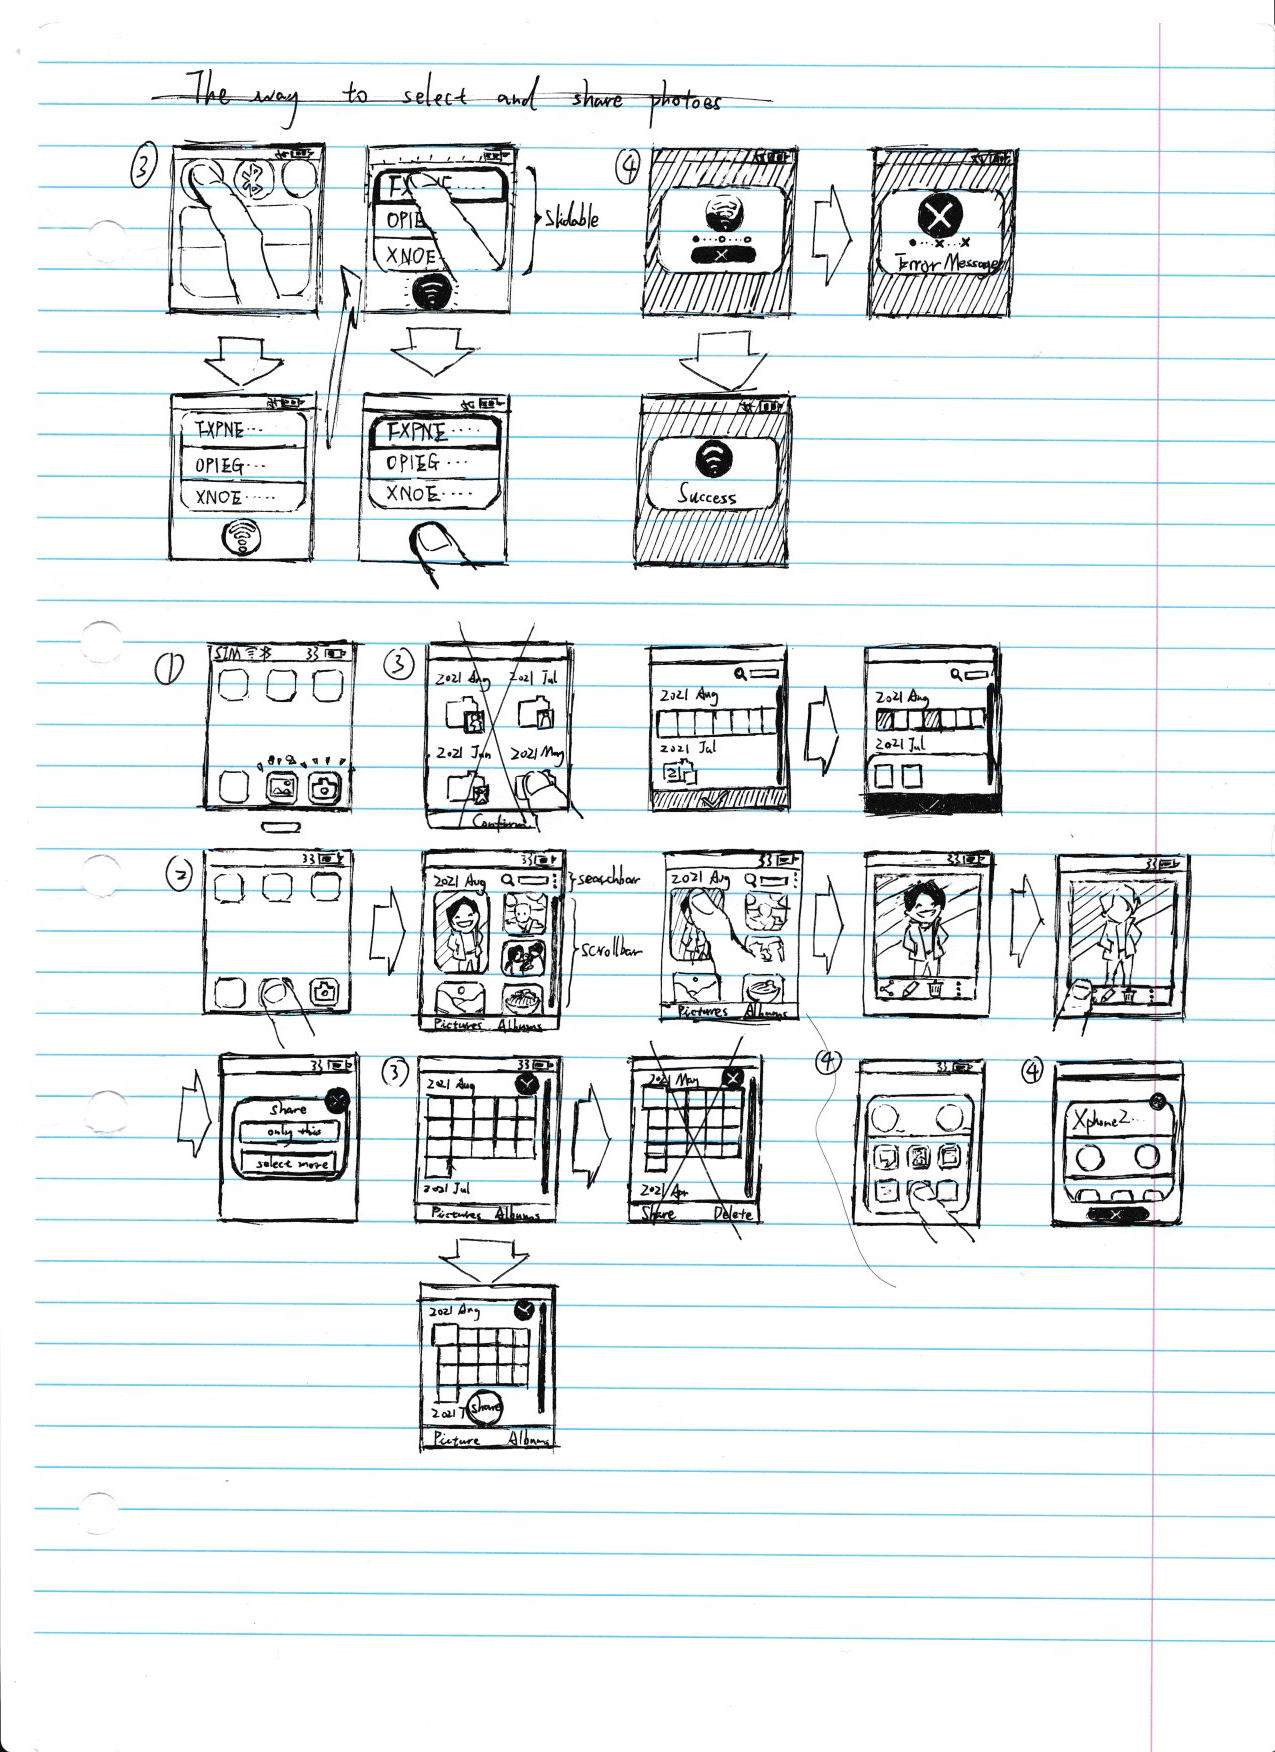 The way to select and share photoes
③
TXPNE ....
OPIE
XNOE
Slidable
④
Error Message
TXPNE ...
OPIEG ...
XNOE .....
TXPNE ....
OPIEG ...
XNOE .....
Success
①
SIM 33
③
2021 Aug 2021 Jul
2021 Jun 2021 May
Confirm
2021 Aug
2021 Jul
21
2021 Aug
2021 Jul
②
33
33
2021 Aug
searchbar
scrollbar
Pictures Albums
33
2021 Aug
Pictures Albums
33
33
33
share
only this
select more
③
33
2021 Aug
2021 Jul
Pictures Albums
2021 May
2021 Apr
Share Delete
④
33
④
Xphone2...
2021 Aug
2021
share
Picture Albums